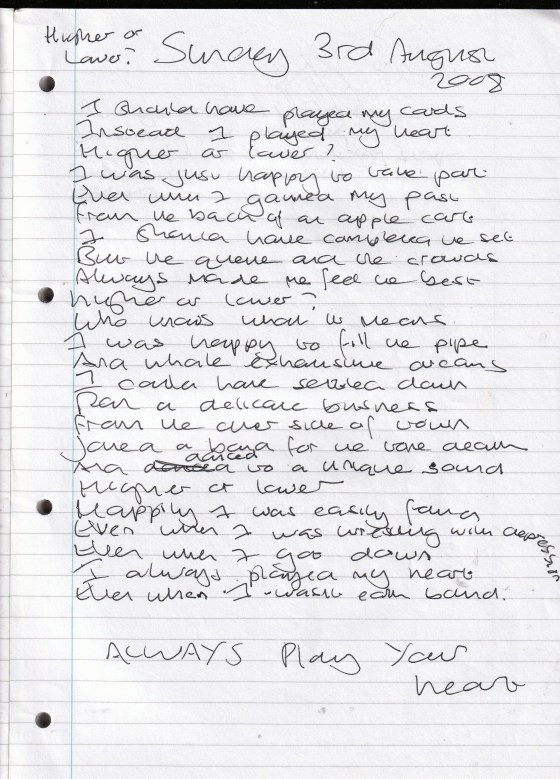 Higher or
Lower?
Sunday 3rd August
2008
I should have played my cards
Instead I played my heart
Higher or lower?
I was just happy to take part
Even when I gained my past
From the back of an apple cart
I should have completed the set
But the queue and the crowds
Always made me feel the best
Higher or lower?
Who knows what it means
I was happy to fill the pipe
And whole exhaustive dreams
I could have settled down
Ran a delicate business
From the other side of town
Joined a band for the
And danced to a unique sound
Higher or lower
Happily I was easily found
Even when I was wrestling with depression
Even when I got down
I always played my heart
Even when I wasn't earth bound.
ALWAYS Play Your
heart